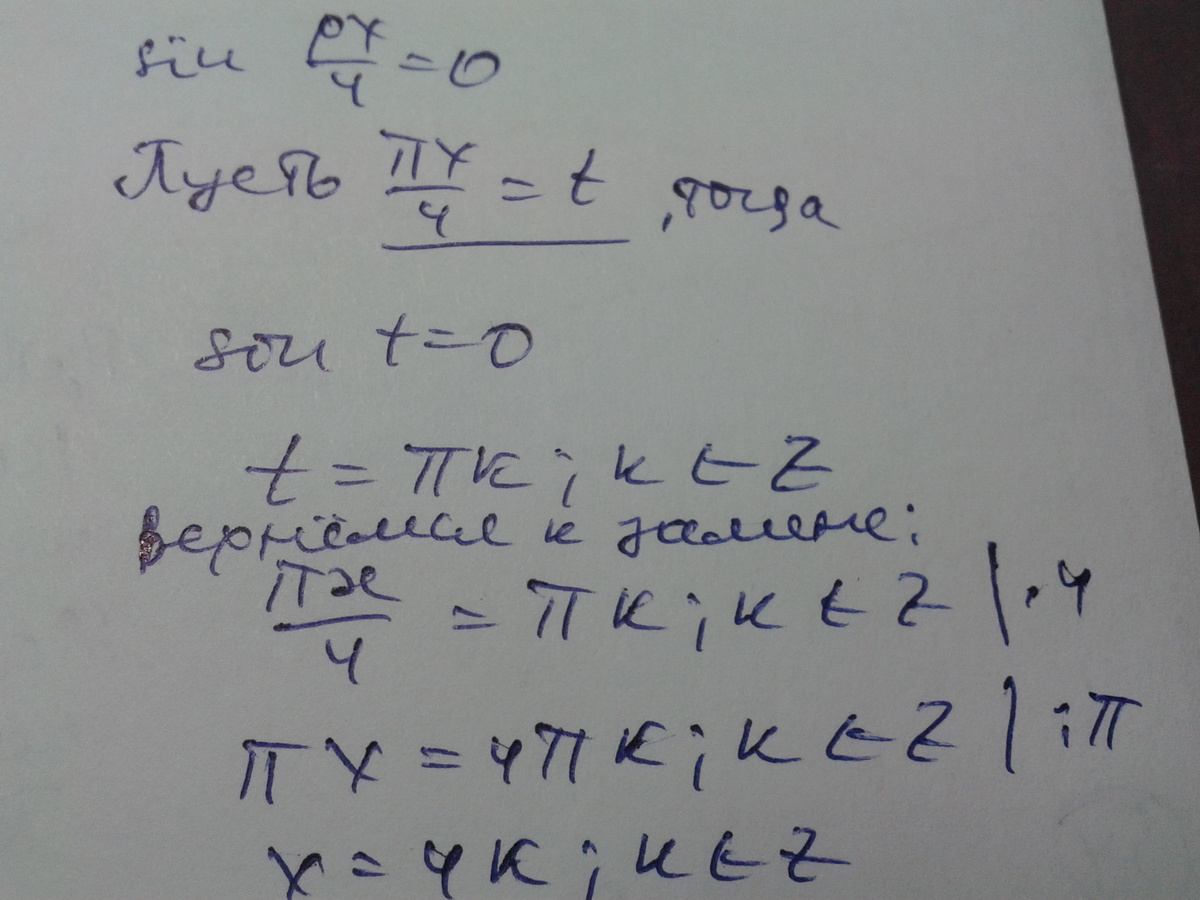 sin px/4 = 0
Пусть πx/4 = t, тогда
sin t = 0
t = πk; k ∈ Z
вернёмся к замене:
πx/4 = πk; k ∈ Z | ·4
πx = 4πk; k ∈ Z | :π
x = 4k; k ∈ Z